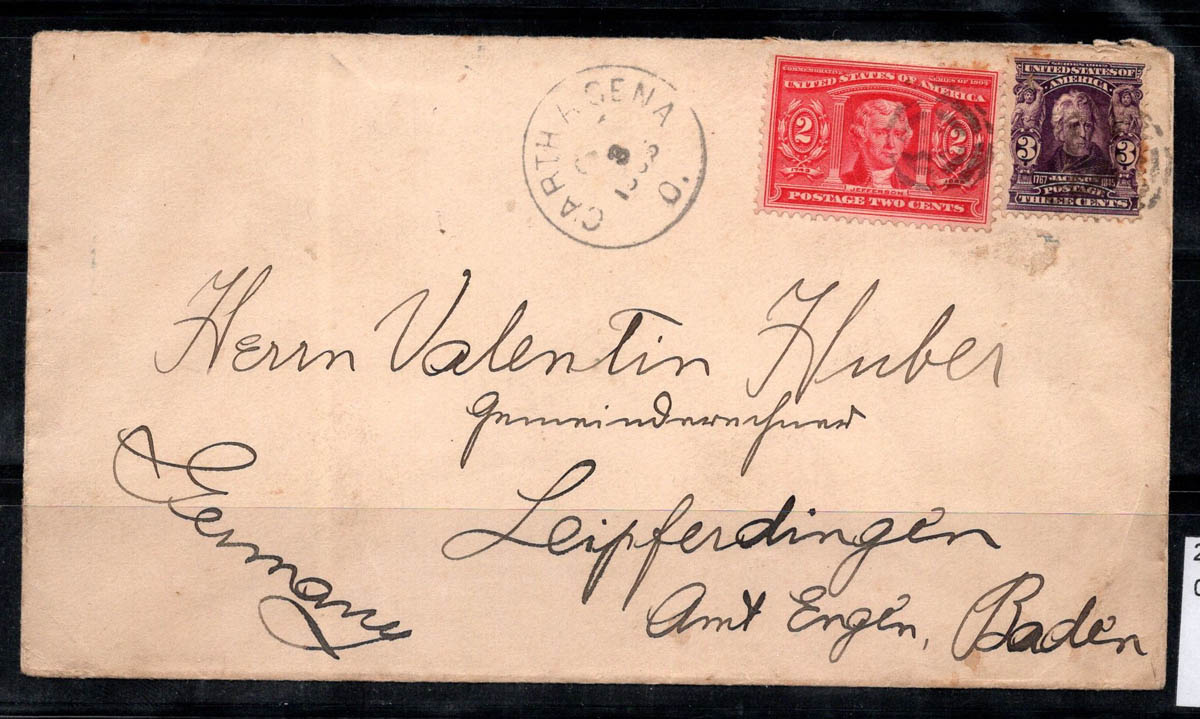 CARTHAGENA O.
COMMEMORATIVE SERIES OF 1904
UNITED STATES OF AMERICA
2 2
JEFFERSON
POSTAGE TWO CENTS
UNITED STATES OF
AMERICA
3 3
1767 JACKSON 1845
POSTAGE
THREE CENTS
Herrn Valentin Huber
Gemeinderechner
Leipferdingen
Amt Engen, Baden
Germany